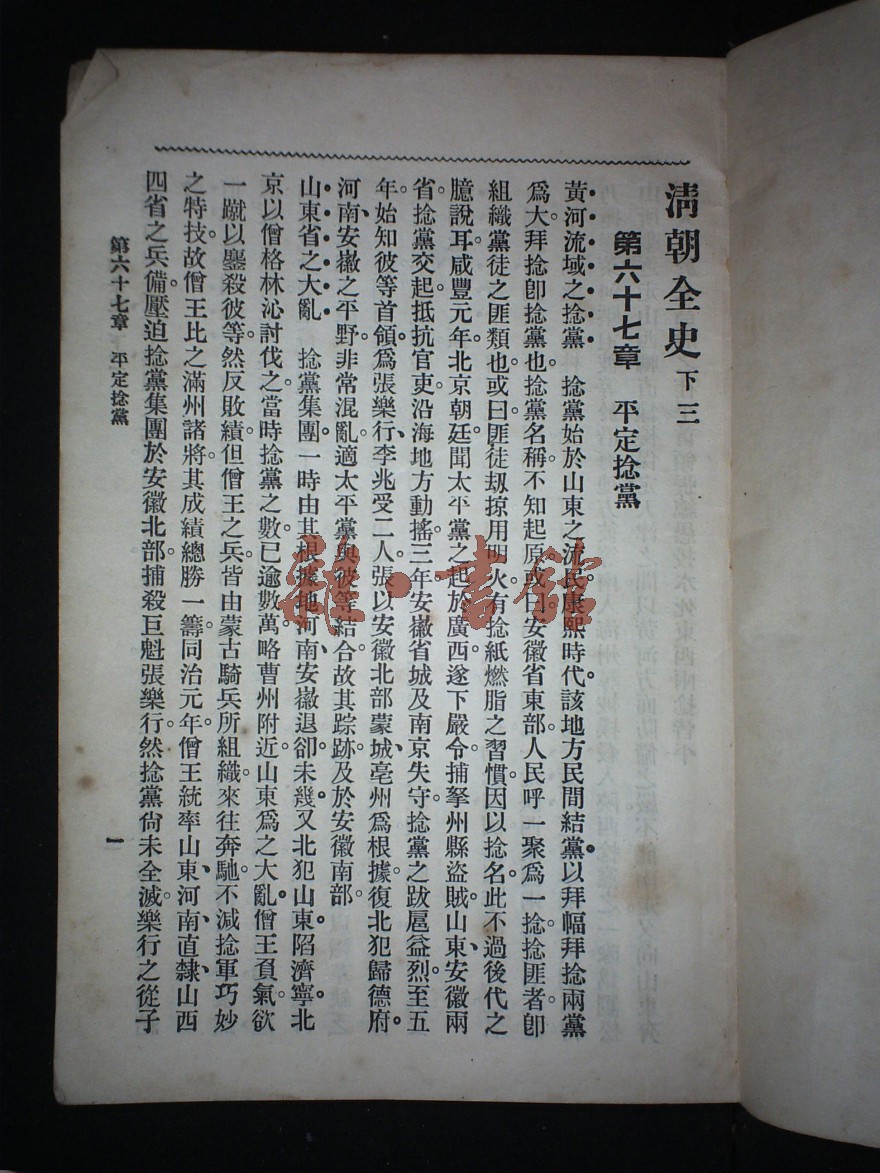 清朝全史 下三
第六十七章 平定捻黨
黃河流域之捻黨 捻黨始於山東之流民。康熙時代。該地方民間結黨。以拜幅拜捻兩黨
爲大。拜捻卽捻黨也。捻黨名稱。不知起原。或曰安徽省東部人民呼一聚爲一捻。捻匪者。卽
組織黨徒之匪類也。或曰匪徒刼掠。用明火。有捻紙燃脂之習慣。因以捻名。此不過後代之
臆說耳。咸豐元年。北京朝廷聞太平黨之起於廣西。遂下嚴令。捕拏州縣盜賊。山東、安徽兩
省捻黨交起。抵抗官吏。沿海地方動搖。三年。安徽省城及南京失守。捻黨之跋扈益烈。至五
年。始知彼等首領。爲張樂行、李兆受二人。張以安徽北部蒙城、亳州爲根據。復北犯歸德府。
河南、安徽之平野。非常混亂。適太平黨與彼等結合。故其踪跡。及於安徽南部。
山東省之大亂 捻黨集團。一時由其根據地河南、安徽退卻。未幾。又北犯山東。陷濟寧。北
京以僧格林沁討伐之。當時捻黨之數。已逾數萬。略曹州附近。山東爲之大亂。僧王負氣。欲
一蹴以鏖殺彼等。然反敗績。但僧王之兵。皆由蒙古騎兵所組織。來往奔馳。不減捻軍巧妙
之特技。故僧王比之滿州諸將。其成績總勝一籌。同治元年。僧王統率山東、河南、直隸、山西
四省之兵備。壓迫捻黨集團於安徽北部。捕殺巨魁張樂行。然捻黨尙未全滅。樂行之從子
第六十七章 平定捻黨
一
雜·書館